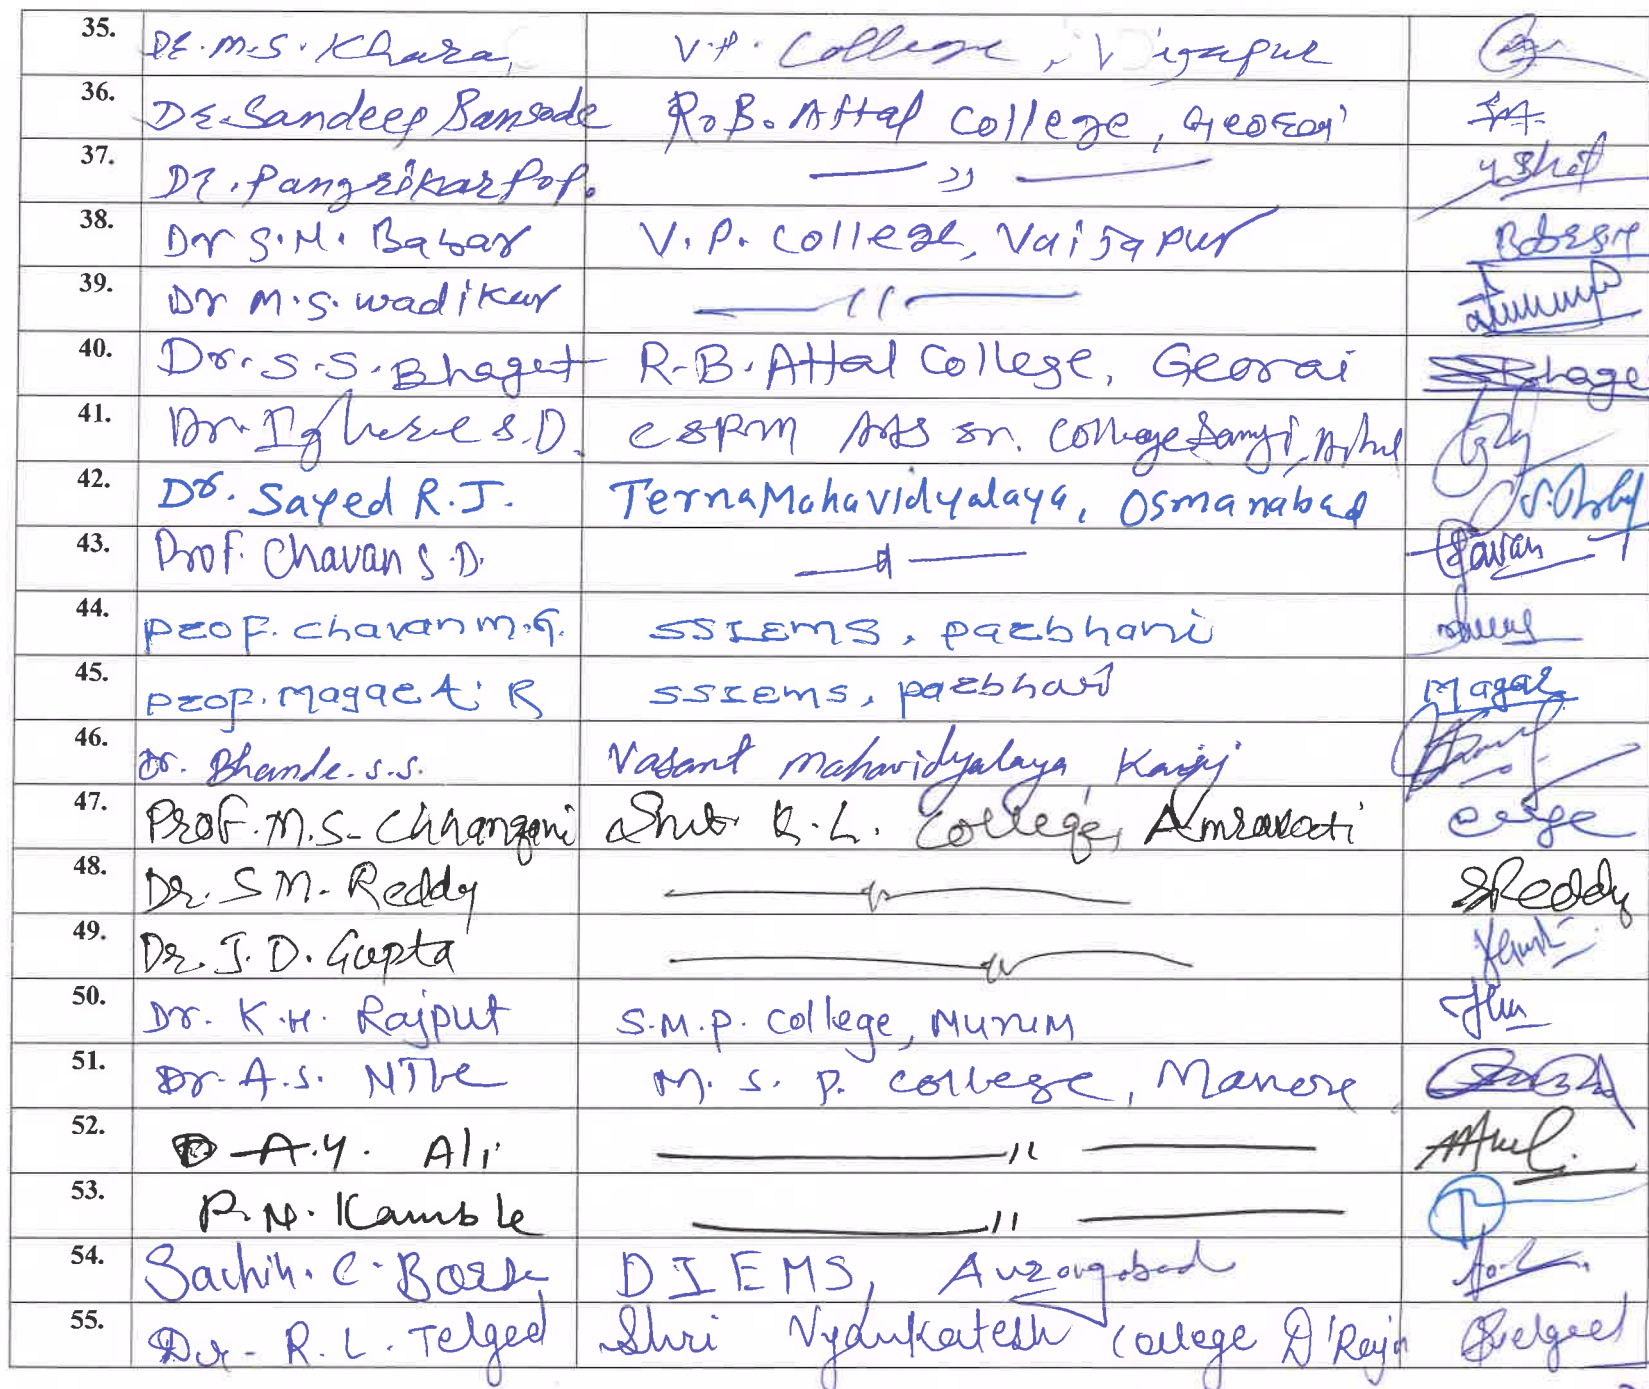 35. Dr. M.S. Khara, V.P. College, Vijapur
36. Dr. Sandeep Bansode R.B. Attal College, Georai
37. Dr. Pangrikar P.P. — 〃 —
38. Dr S.M. Babar V.P. College, Vaijapur
39. Dr M.S. Wadikar — 〃 —
40. Dr. S.S. Bhagat R.B. Attal College, Georai Bhage
41. Dr. S.D. CSPM Arts Sr. College
42. Dr. Sayed R.J. Terna Mahavidyalaya, Osmanabad
43. Prof. Chavan S.D. — 〃 — Chavan
44. Prof. Chavan M.G. SSIEMS, Parbhani
45. Prof. Magar A. R SSIEMS, Parbhani Magar
46. Dr. Bhande. S.S. Vasant Mahavidyalaya, Kaij
47. Prof. M.S. Chhangani Smt. K.L. College, Amravati
48. Dr. S M. Reddy — 〃 — SReddy
49. Dr. J. D. Gupta — 〃 —
50. Dr. K.H. Rajput S.M.P. College, Murum
51. Dr. A.S. M. S. P. College, Manore
52. D A.Y. Ali — 〃 —
53. P.N. Kamble — 〃 —
54. Sachin. C. DIEMS, Aurangabad
55. Dr. R. L. Telged Shri Vyankatesh College D'Raja Telged